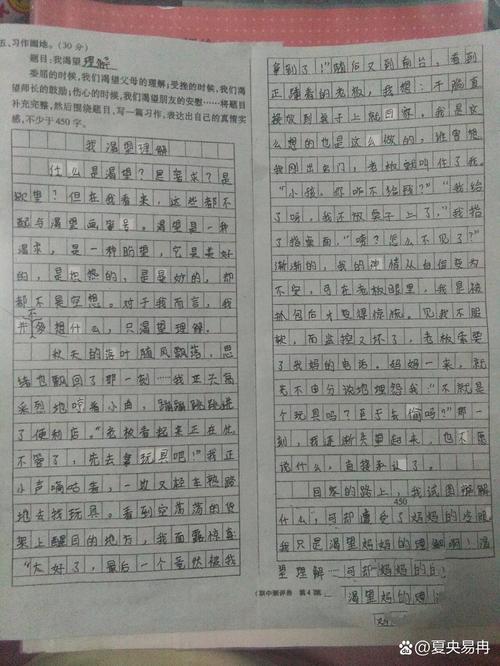 五、习作园地。(30分)
题目：我渴望理解
委屈的时候，我们渴望父母的理解；受挫的时候，我们渴
望师长的鼓励；伤心的时候，我们渴望朋友的安慰……将题目
补充完整，然后围绕题目，写一篇习作，表达出自己的真情实
感，不少于450字。
我渴望理解
什么是渴望？是要求？是
欲望？但在我看来，这些都不
配与渴望画等号。渴望是一种
渴求，是一种盼望，它是美好
的，是炽热的，是曼妙的，却
都不是空想。对于我而言，我
并不多想什么，只渴望理解。
秋天的落叶随风飘落，思
绪也飘回了那一刻……我正兴高
采烈地哼着小曲，蹦蹦跳跳进
了便利店。“老板看起来正在忙
不管了，先去拿玩具吧！”我正
小声嘀咕着，一边又轻车熟路
地去找玩具。看到空荡荡的货
架上醒目的地方，我面露惊喜
“太好了，最后一个竟然被我
拿到了！”随后又到前台，看到
正睡着的老板，我想：干脆直
接放到桌子上就回家。我是这
么想的也是这么做的，
我刚出门，老板就叫住了我。
“小孩，你咋不给钱？”“我给
了呀，我还放桌子上了。”我指
了指桌面，“咦？怎么不见了？”
渐渐的，我的神情从自信变为
不安，可在老板眼里，我是被
抓包后才变得惊慌。见我不服
软，而监控又坏了，老板需要
了我妈的电话。妈妈一来，就
先不由分说地埋怨我“不就是
个玩具吗？至于去偷吗？”那一
刻，我逐渐失望起来，也不愿
说什么，直接承认了。
回家的路上，我试图辩解
450
什么，可却遭受了妈妈的
我只是渴望妈妈的理解啊！渴
望理解……可却妈妈的
渴望妈妈的理
(期中测评卷 第4页)
Bai百度 @夏央易冉